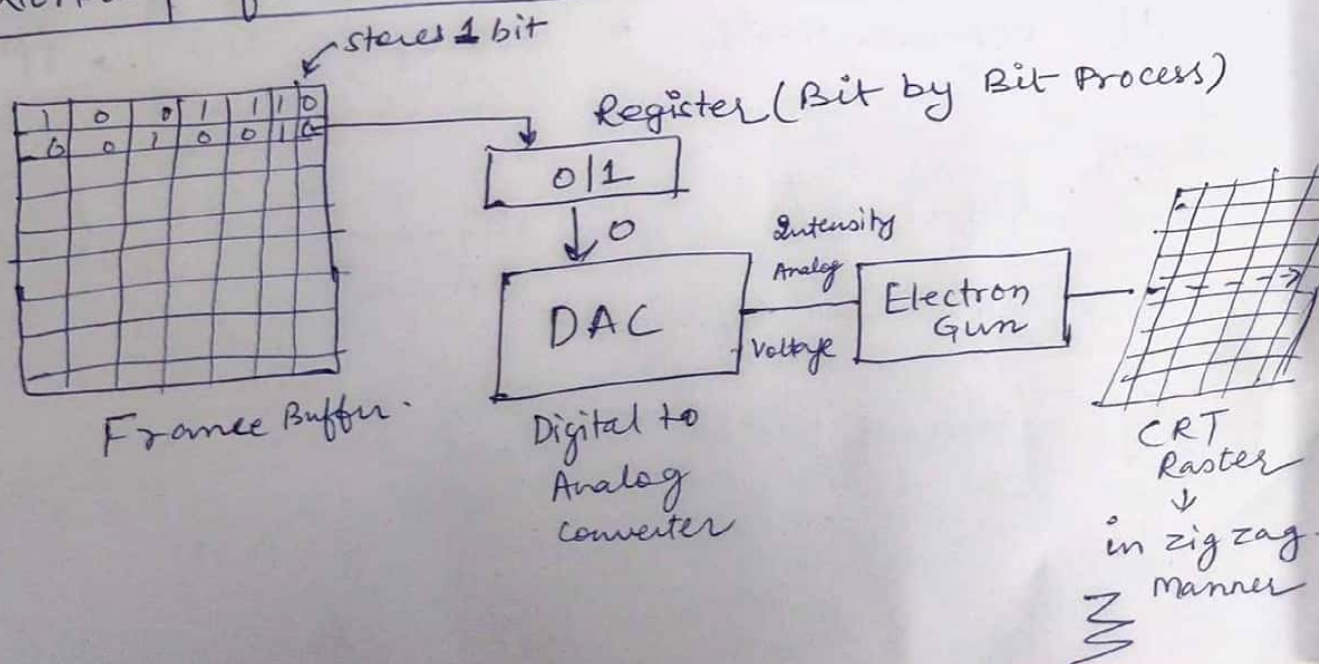 stores 1 bit
1 0 0 1 1 1 0
0 0 1 0 0 1 0
Register (Bit by Bit Process)
0|1
0
DAC
Intensity
Analog
Voltage
Electron
Gun
Frame Buffer.
Digital to
Analog
converter
CRT
Raster
↓
in zig zag
Manner